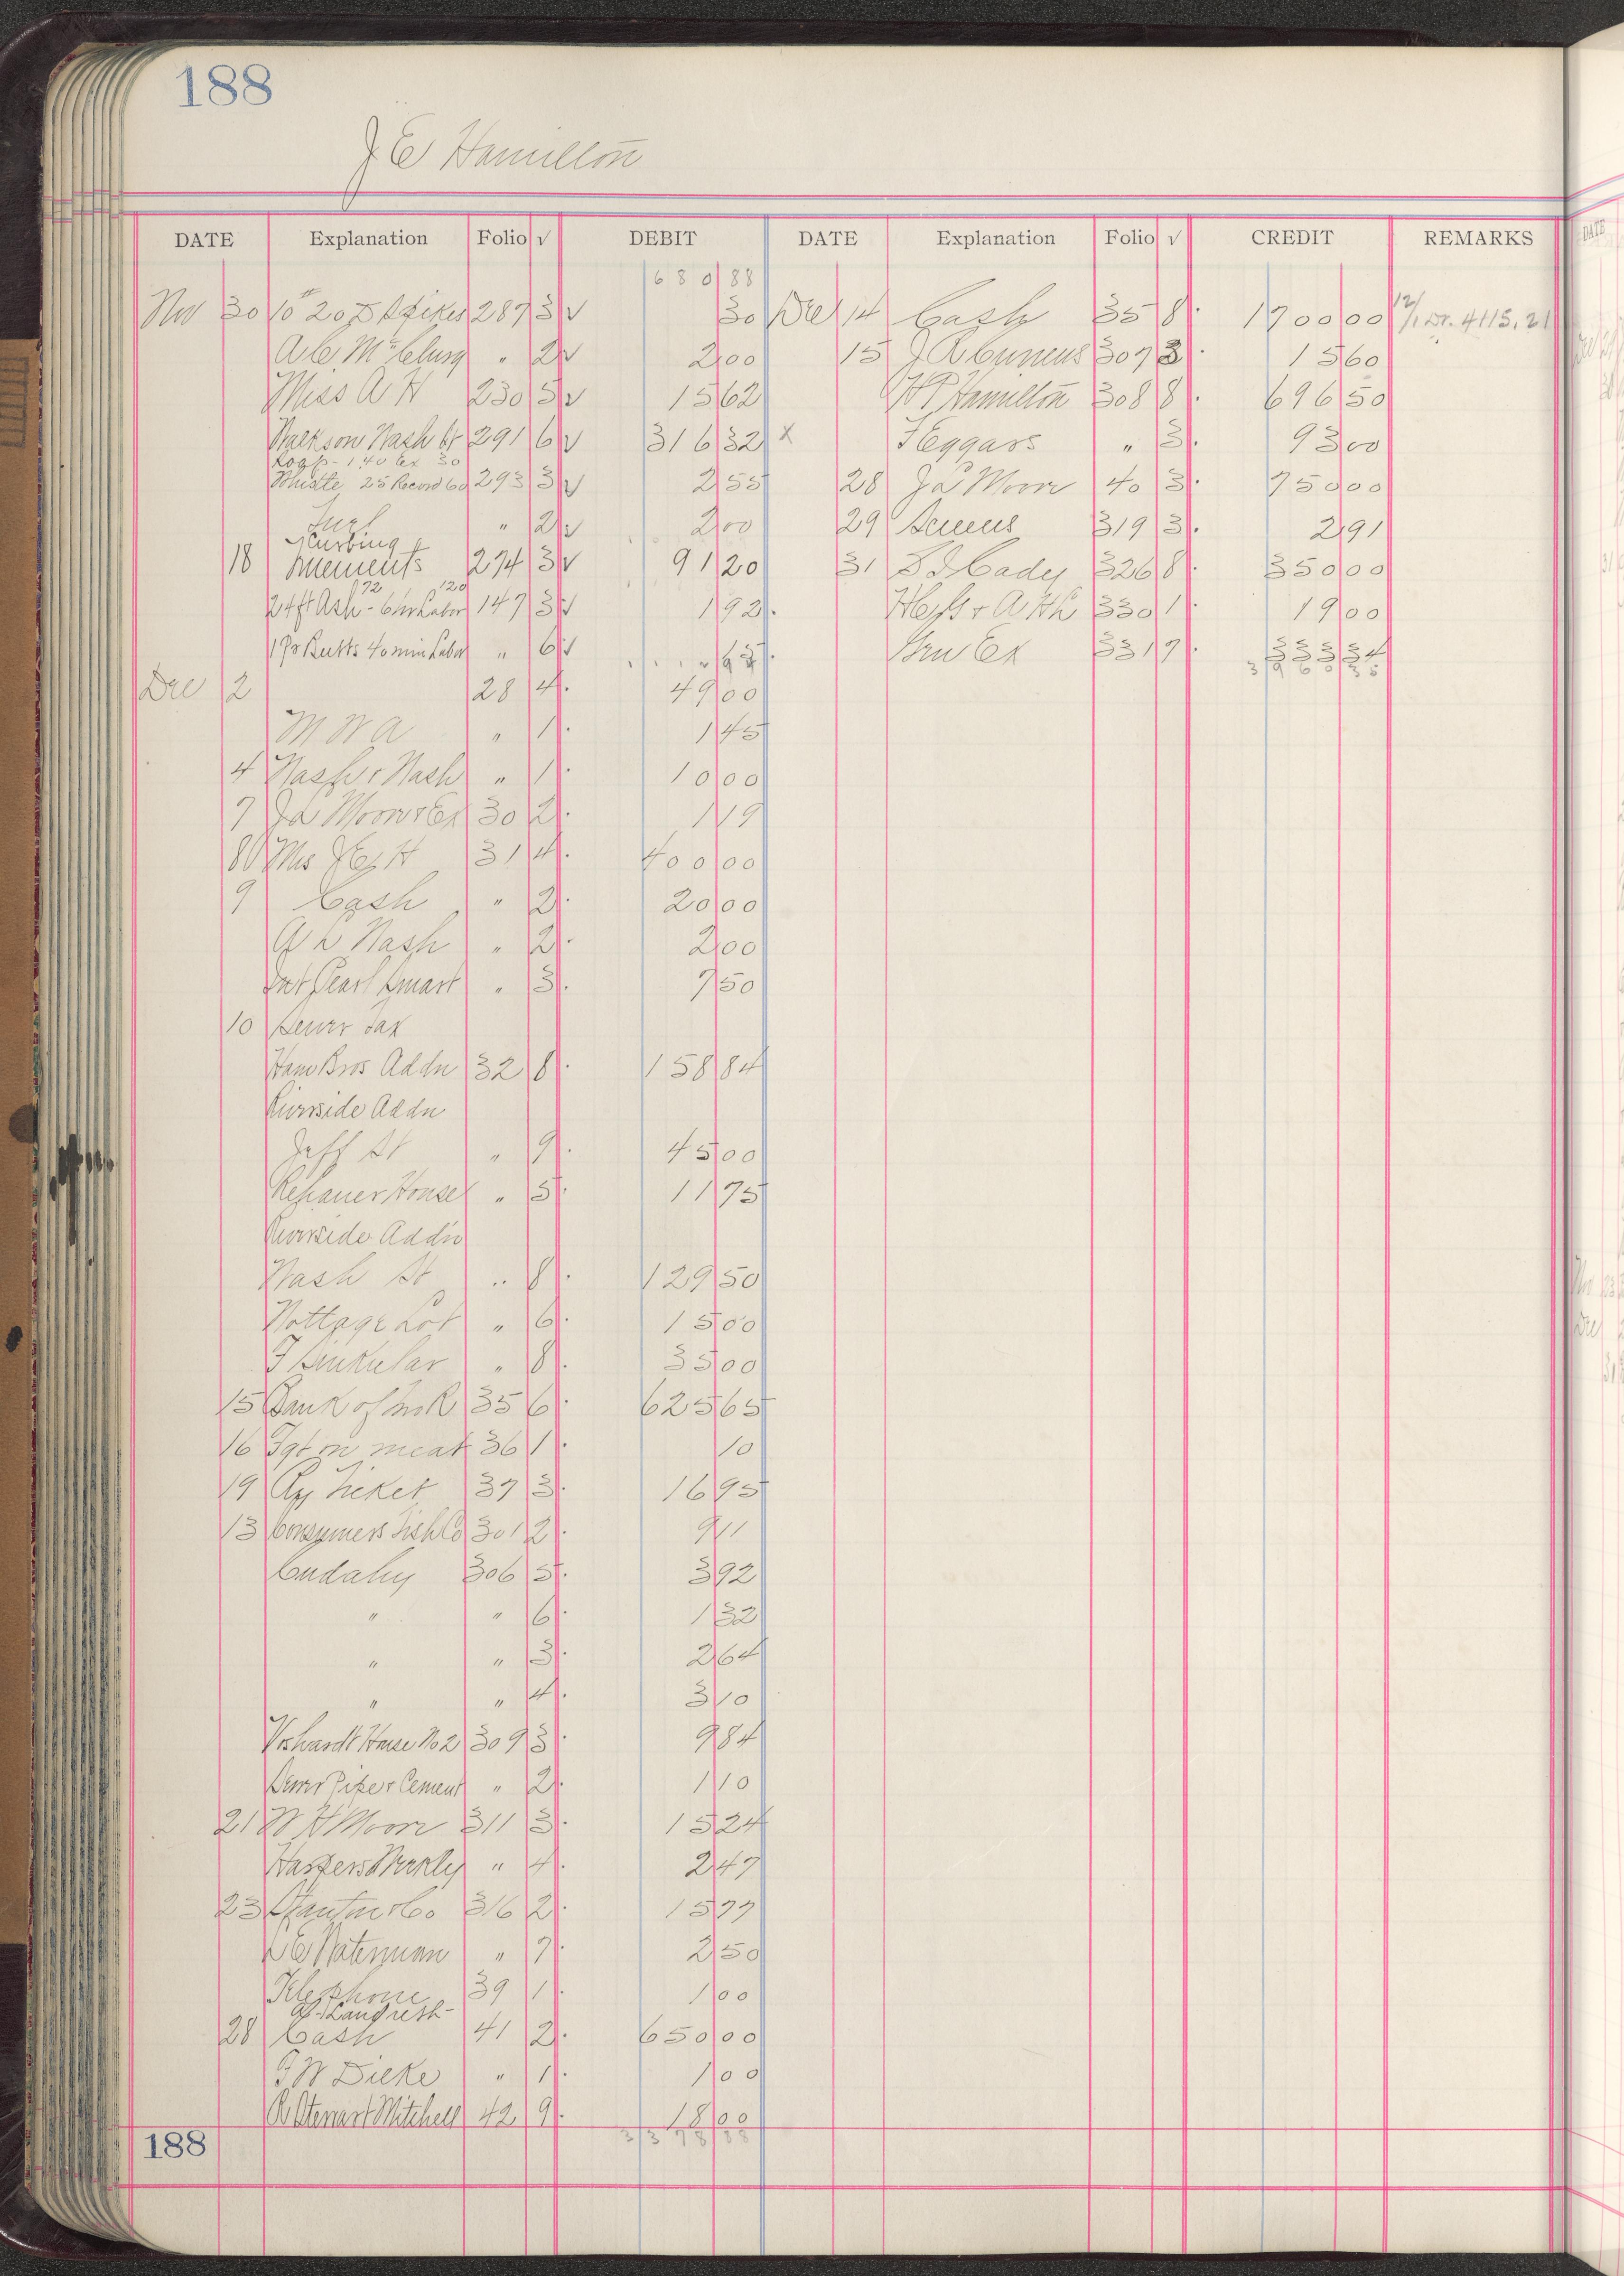 188
J E Hamilton
DATE Explanation Folio √ DEBIT DATE Explanation Folio √ CREDIT REMARKS
680 88
Nov 30 10# 20 D Spikes 287 3 √ 30
A C McClurg " 2 √ 2 00
Miss A H 230 5 √ 15 62
Walkson Nash St 291 6 √ 316 32 x
Loaf - 1 40 Ex 30
Whistle 25 Record 60 293 3 √ 2 55
Fuel " 2 √ 2 00
Curbing
18 274 3 √ 91 20
72 120
24 ft Ash - 6 hr Labor 147 3 √ 1 92
1 Pr Butts 40 min Labor " 6 √
Dec 2 28 4 49 00
M W A " 1 1 45
4 Nash & Nash " 1 10 00
7 J A Moore & Ex 30 2 1 19
8 Mrs J E H 31 4 400 00
9 Cash " 2 20 00
A L Nash " 2 2 00
Int Pearl Smart " 3 7 50
10 Sewer Tax
Ham Bros Addn 32 8 158 84
Riverside Addn
Jeff St " 9 45 00
House " 5 11 75
Riverside Addn
Nash St " 8 129 50
Nottage Lot " 6 15 00
F Sinkular " 8 35 00
15 Bank of Two R 35 6 625 65
16 Fgt on meat 36 1 10
19 Ry Ticket 37 3 16 95
13 Consumers Fish Co 301 2 9 11
Cudahy 306 5 3 92
" " 6 1 32
" " 3 2 64
" " 4 3 10
House No 2 309 3 9 84
Sewer Pipe & Cement " 2 1 10
21 W H Moore 311 3 15 24
Harpers Weekly " 4 2 47
23 Stanton & Co 316 2 15 77
L E Waterman " 7 2 50
Telephone 39 1 1 00
28 Cash 41 2 650 00
F W Dicke " 1 1 00
R Stewart Mitchell 42 9 18 00
3378 88
188
Dec 14 Cash 35 8 1700 00 12/1 Dr. 4115.21
15 J R 307 3 15 60
H P Hamilton 308 8 696 50
F Eggars " 3 93 00
28 J A Moore 40 3 750 00
29 Screens 319 3 2 91
31 S I Cady 326 8 350 00
330 1 19 00
Gen Ex 331 7 333 34
3960 35